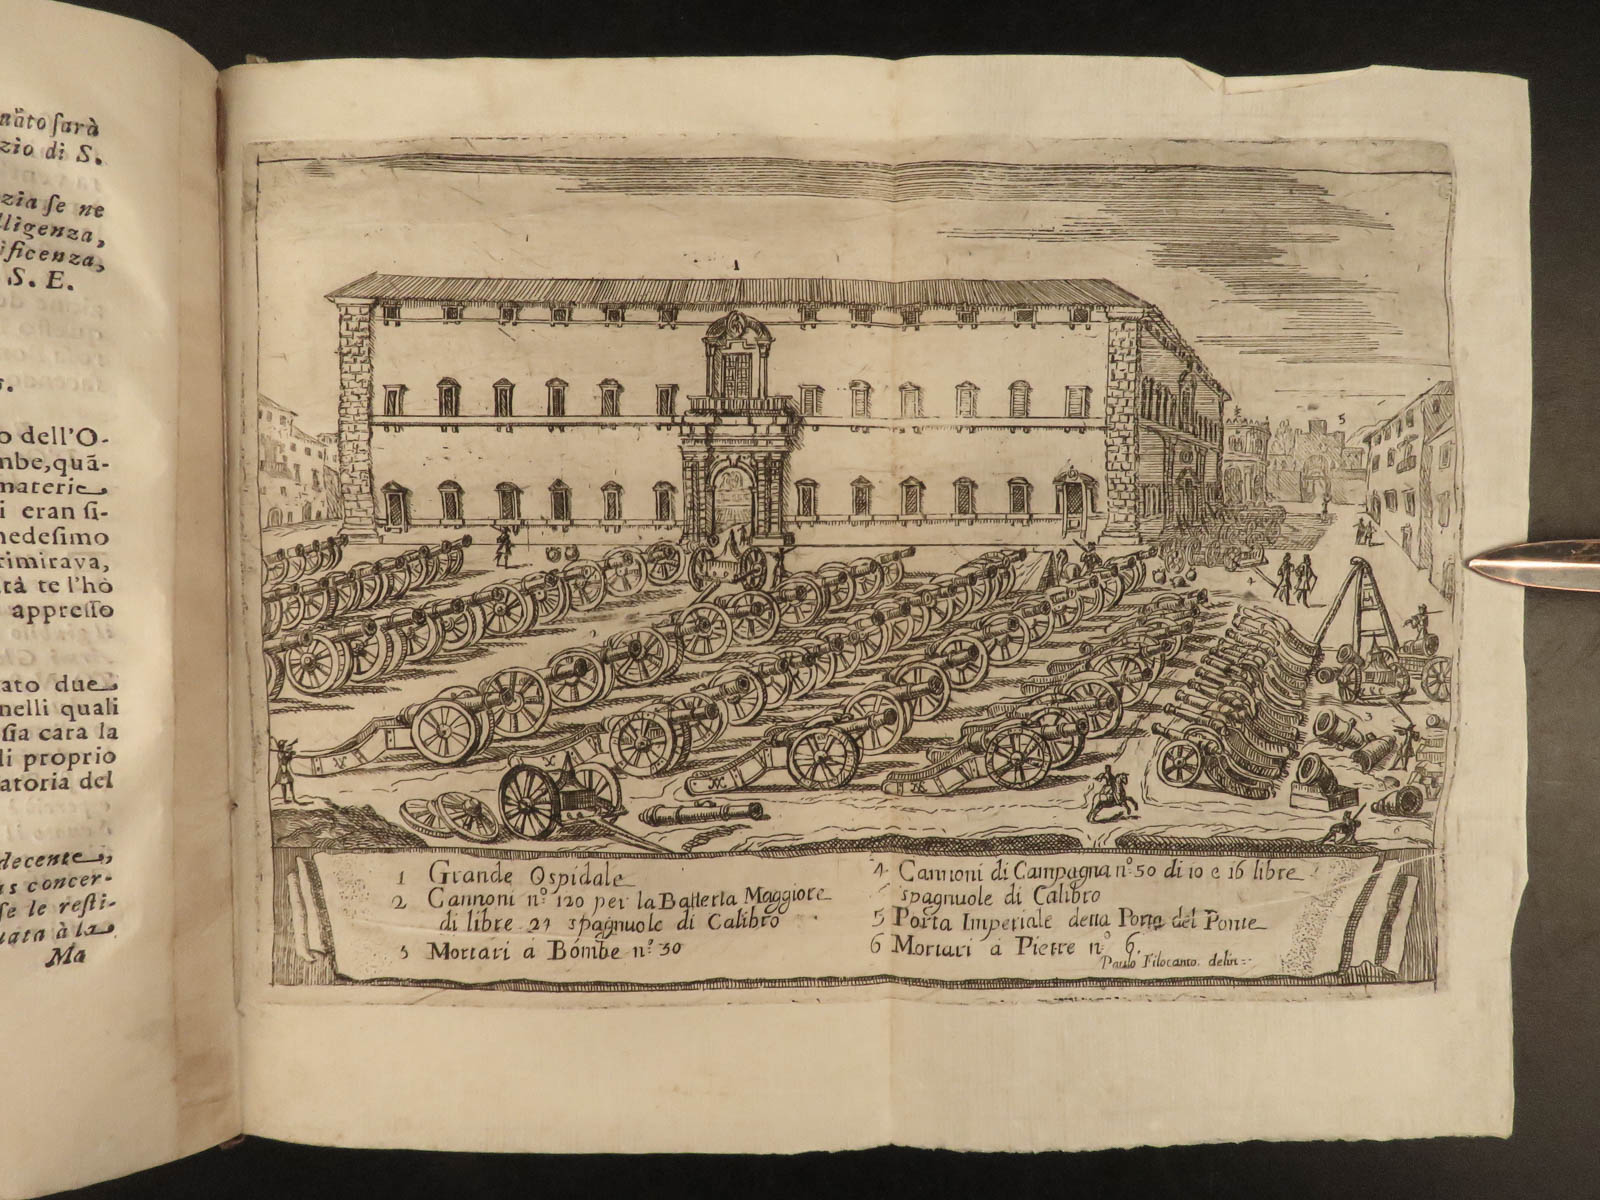 ſarà
zio di S.
zia ſe ne
lligenza,
ificenza,
S. E.
o dell'O-
mbe, quã-
materie
i eran ſi-
medeſimo
rimirava,
tà te l'hò
appreſſo
ato due
nelli quali
ſia cara la
li proprio
atoria del
decente,
as concer-
ſe le reſti-
uata à la
Ma
1
5
2
4
3
6
1 Grande Ospidale
2 Cannoni n.º 120 per la Batteria Maggiore
di libre 27 spagnuole di Calibro
3 Mortari a Bombe n.º 30
4 Cannoni di Campagna n.º 50 di 10 e 16 libre
spagnuole di Calibro
5 Porta Imperiale detta Porta del Ponte
6 Mortari a Pietre n.º 6.
Paulo Filocamo. delin: